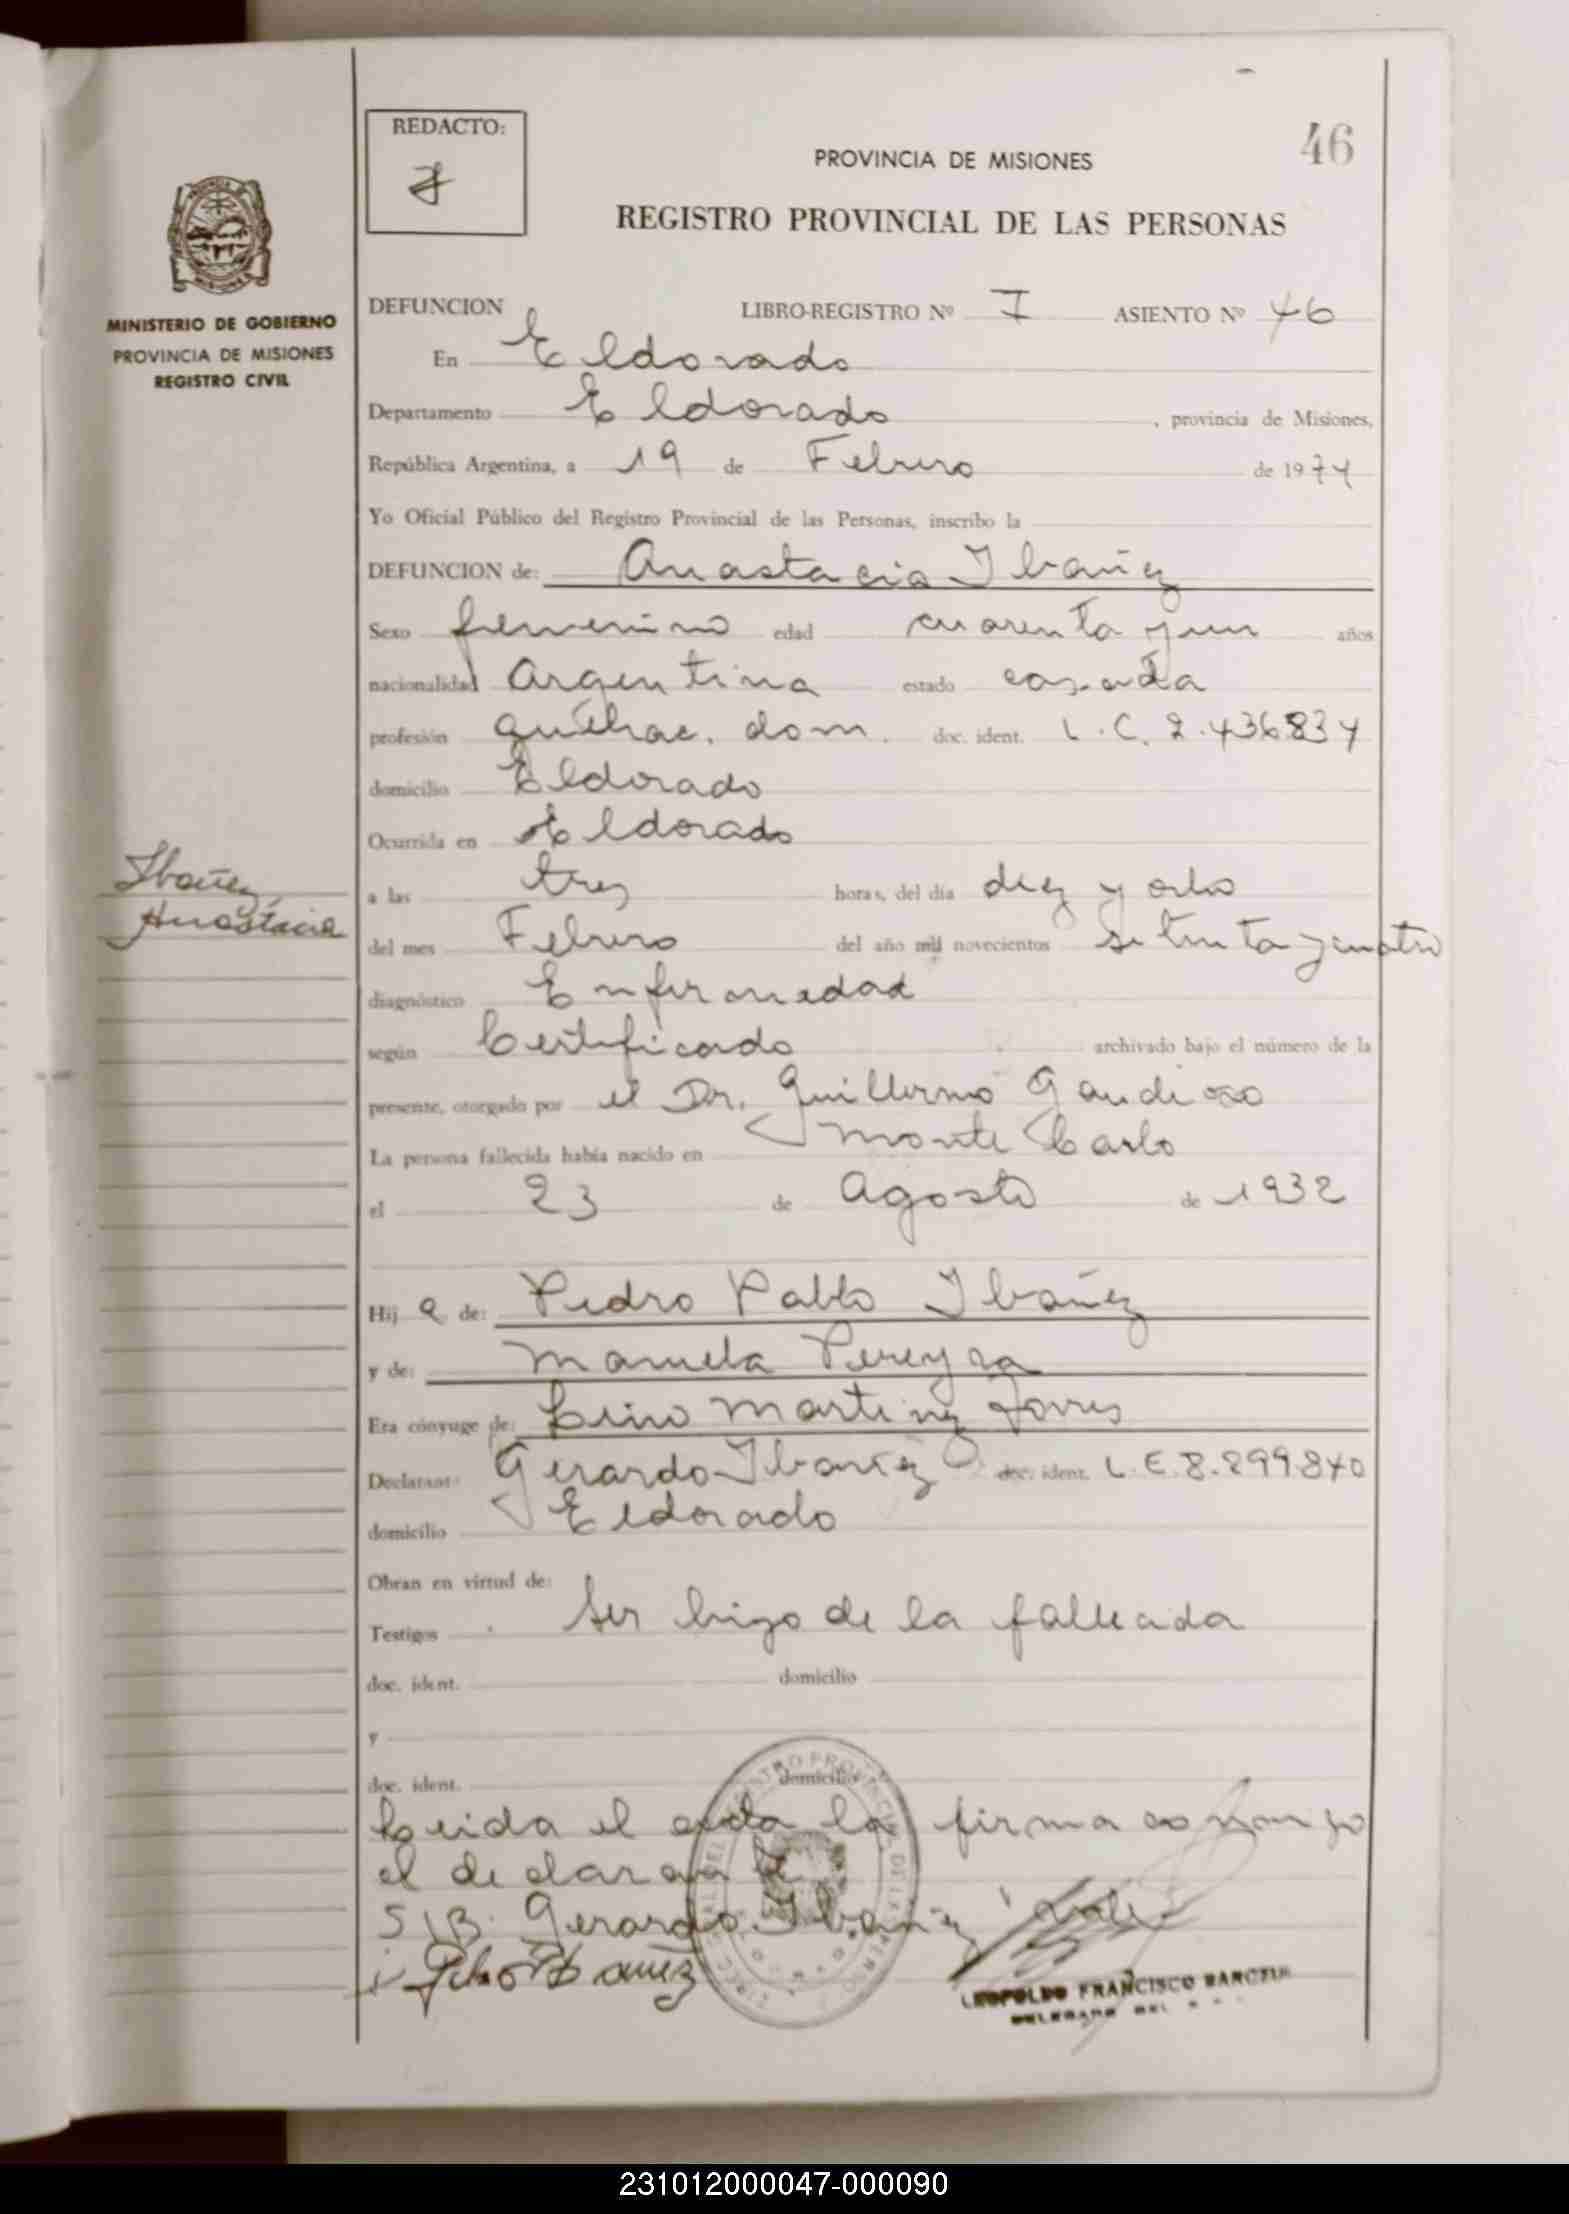 REDACTO:
46
PROVINCIA DE MISIONES
REGISTRO PROVINCIAL DE LAS PERSONAS
MINISTERIO DE GOBIERNO
PROVINCIA DE MISIONES
REGISTRO CIVIL
DEFUNCION LIBRO-REGISTRO Nº I ASIENTO Nº 46
En Eldorado
Departamento Eldorado, provincia de Misiones,
República Argentina, a 19 de Febrero de 1974
Yo Oficial Público del Registro Provincial de las Personas, inscribo la
DEFUNCION de: Anastacia Ibañez
Sexo femenino edad cuarenta y un años
nacionalidad Argentina estado casada
profesión quehac. dom. doc. ident. L.C. 2.436834
domicilio Eldorado
Ocurrida en Eldorado
Ibañez
Anastacia
a las tres horas, del día diez y ocho
del mes Febrero del año mil novecientos setenta y cuatro
diagnóstico Enfermedad
según Certificado archivado bajo el número de la
presente, otorgado por el Dr. Guillermo Gaudioso
La persona fallecida había nacido en Monte Carlo
el 23 de Agosto de 1932
Hij a de: Pedro Pablo Ibañez
y de: Manuela Pereyra
Era cónyuge de: Martinez Torres
Declarante Gerardo Ibañez doc. ident. L.E. 8.299.840
domicilio Eldorado
Obran en virtud de:
Testigos ser hijo de la fallecida
doc. ident. domicilio
y
doc. ident. domicilio
Leida el acta la firma conmigo
el declarante
S/B. Gerardo Ibañez vale
LEOPOLDO FRANCISCO
231012000047-000090